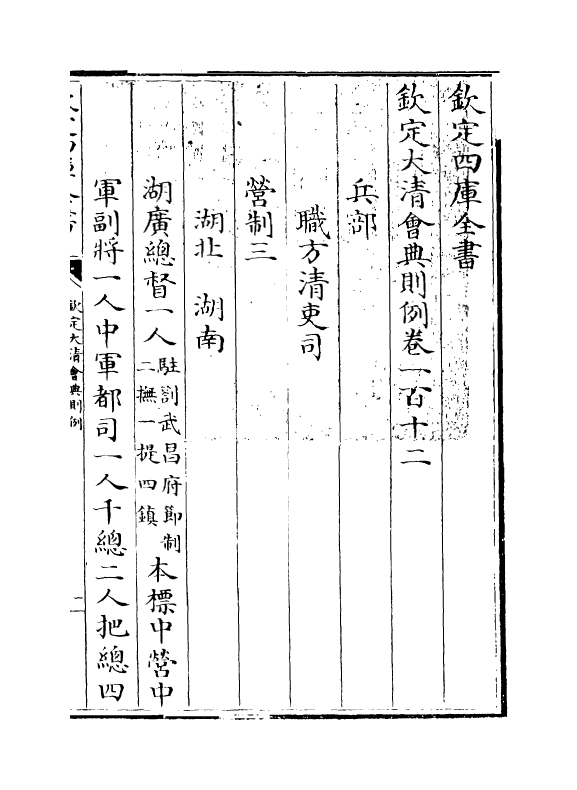 欽定四庫全書
欽定大清會典則例卷一百十二
兵部
職方清吏司
營制三
湖北　湖南
湖廣總督一人駐劄武昌府節制二撫一提四鎮本標中營中
軍副將一人中軍都司一人千總二人把總四
欽定大清會典則例